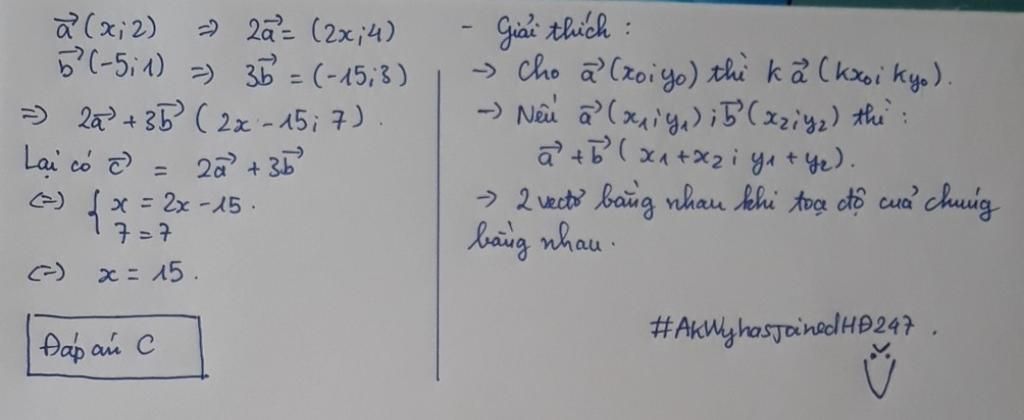 a⃗ (x;2) => 2a⃗ = (2x;4)
b⃗ (-5;1) => 3b⃗ = (-15;3)
=> 2a⃗ + 3b⃗ (2x-15;7).
Lại có c⃗ = 2a⃗ + 3b⃗
<=> { x = 2x-15.
7 = 7
<=> x = 15.
Đáp án C
- Giải thích :
-> Cho a⃗ (x₀;y₀) thì k a⃗ (kx₀; ky₀).
-> Nếu a⃗ (x₁;y₁) ; b⃗ (x₂;y₂) thì :
a⃗ + b⃗ ( x₁+x₂ ; y₁+y₂).
-> 2 vectơ bằng nhau khi toạ độ của chúng
bằng nhau.
#AkWyhasjoinedHĐ247 .